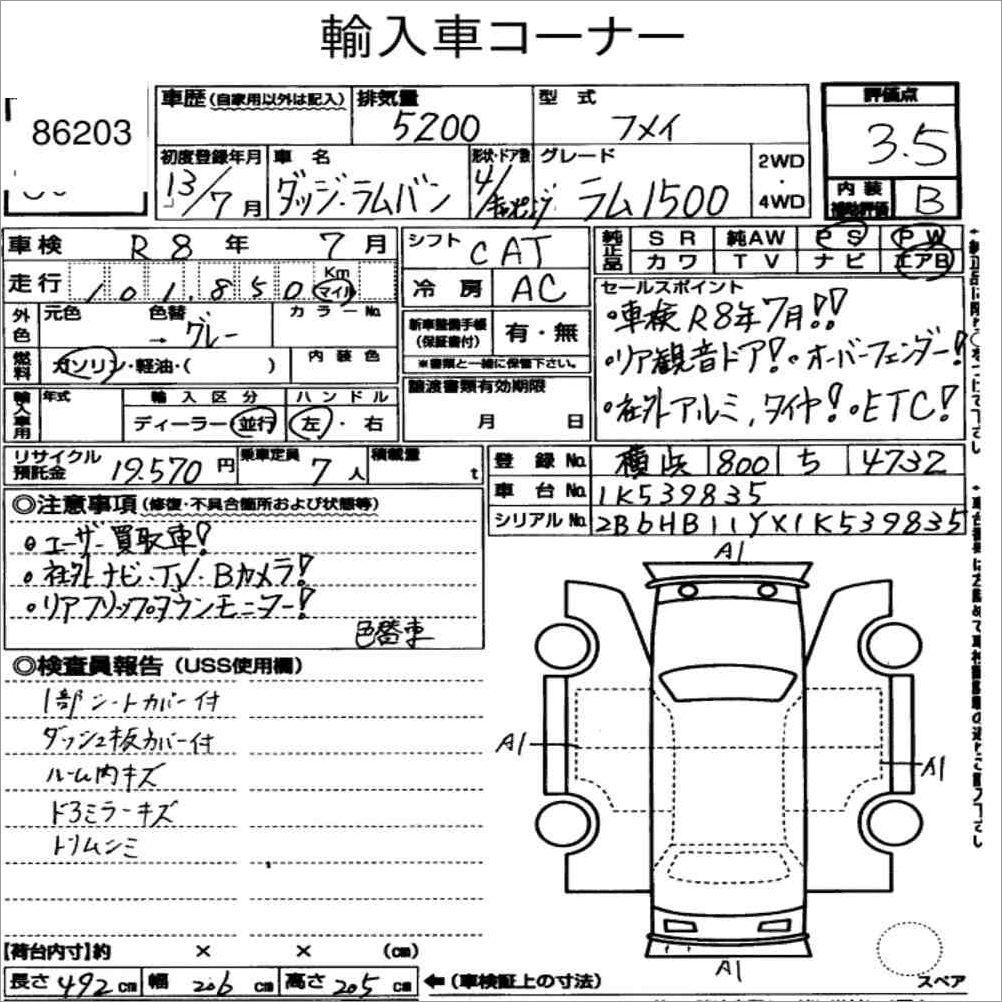 輸入車コーナー
86203
車歴(自家用以外は記入) 排気量 5200 型式 フメイ 評価点 3.5
初度登録年月 13/7月 車名 ダッジ・ラムバン 形状・ドア数 4/ グレード ラム1500 2WD・4WD 内装補助評価 B
車検 R8年7月 シフト CAT 純正品 SR 純AW PS PW
カワ TV ナビ エアB
走行 101,850 Km マイル 冷房 AC
外色 元色 色替 → グレー カラーNo. 新車整備手帳(保証書付) 有・無
※書類と一緒に保管下さい。
燃料 ガソリン・軽油・( ) 内装色 譲渡書類有効期限 月 日
セールスポイント
・車検R8年7月!!
・リア観音ドア!・オーバーフェンダー!
・社外アルミ,タイヤ!・ETC!
輸入車用 年式 輸入区分 ディーラー・並行 ハンドル 左・右
リサイクル預託金 19.570円 乗車定員 7人 積載量 t
登録No. 横浜 800 ち 4732
車台No. 1K539835
シリアルNo. 2B6HB11YX1K539835
◎注意事項(修復・不具合箇所および状態等)
・ユーザー買取車!
・社外ナビ・TV・Bカメラ!
・リアフリップダウンモニター!
色替車
◎検査員報告(USS使用欄)
1部シートカバー付
ダッシュ板カバー付
ルーム内キズ
ドミラーキズ
トリムシミ
A1
A1
A1
A1
スペア
【荷台内寸】約 × × (cm)
長さ 492 cm 幅 206 cm 高さ 205 cm ←(車検証上の寸法)